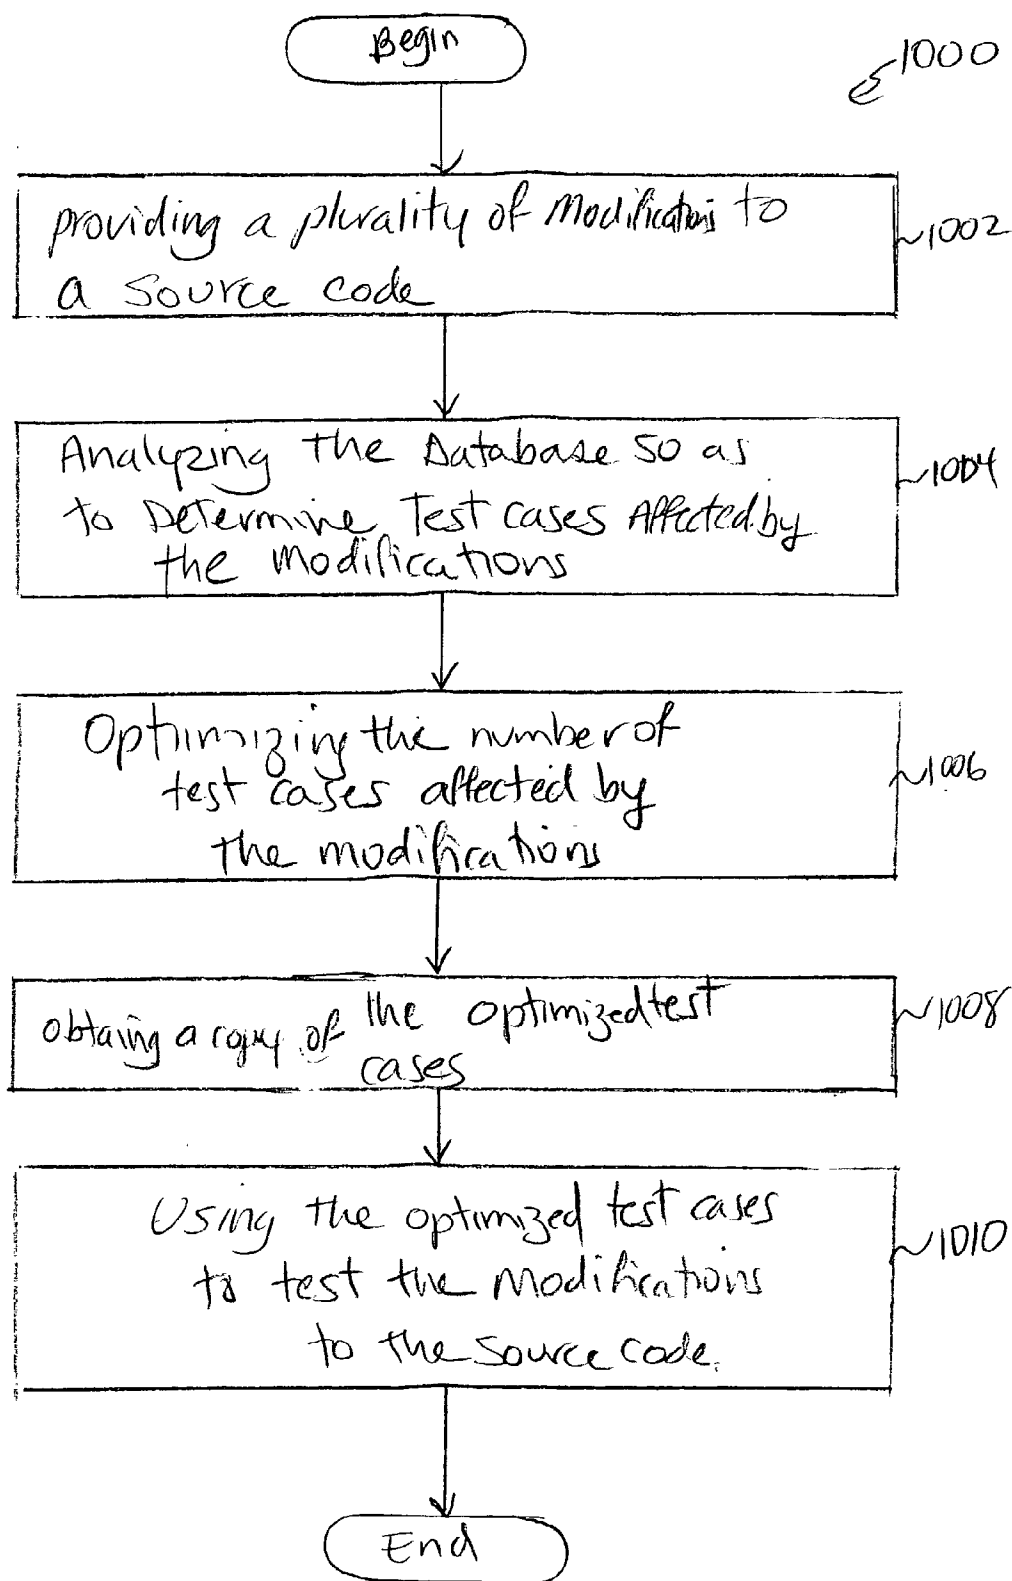 Begin
1000
providing a plurality of Modifications to
a source code
1002
Analyzing the Database so as
to Determine Test cases Affected by
the Modifications
1004
Optimizing the number of
test cases affected by
the modifications
1006
obtaing a copy of the optimized test
cases
1008
Using the optimized test cases
to test the Modifications
to the source code.
1010
End